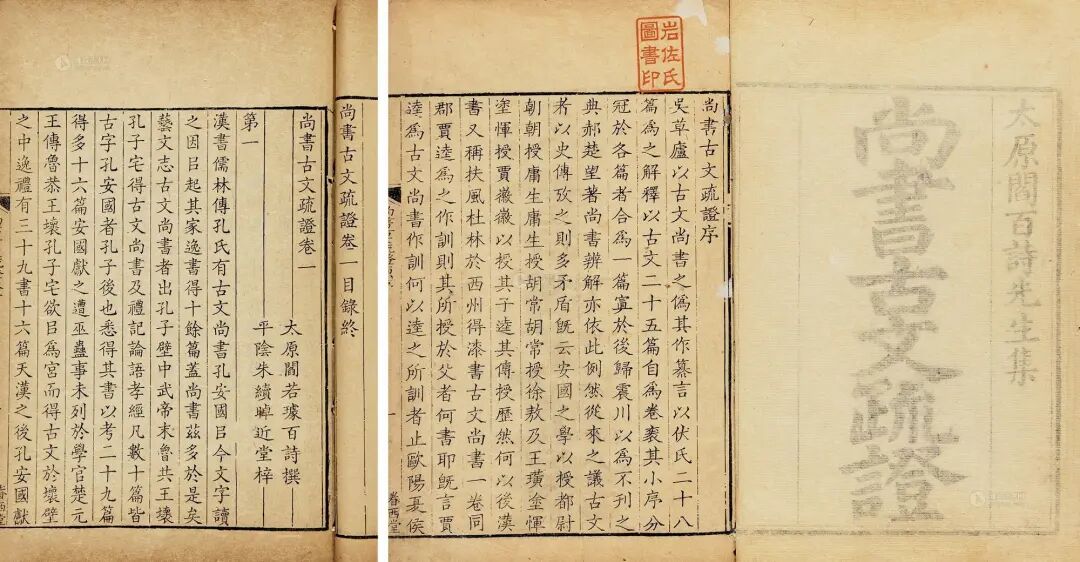 太原閻百詩先生集
尚書古文疏證
岩佐氏
圖書印
尚書古文疏證序
吳草廬以古文尚書之僞其作纂言以伏氏二十八
篇為之解釋以古文二十五篇自為卷袠其小序分
冠於各篇者合為一篇寘於後歸震川以為不刊之
典郝楚望著尚書辨解亦依此例然從來之議古文
者以史傳攷之則多矛盾旣云安國之學以授都尉
朝朝授庸生庸生授胡常胡常授徐敖及王璜塗惲
塗惲授賈徽徽以授其子逵其傳授歷然何以後漢
書又稱扶風杜林於西州得漆書古文尚書一卷同
郡賈逵為之作訓則其所授於父者何書耶旣言賈
逵為古文尚書作訓何以逵之所訓者止歐陽夏侯
一
眷西堂
尚書古文疏證卷一目錄終
尚書古文疏證卷一
太原閻若璩百詩撰
平陰朱續晫近堂梓
第一
漢書儒林傳孔氏有古文尚書孔安國㠯今文字讀
之因㠯起其家逸書得十餘篇蓋尚書茲多於是矣
藝文志古文尚書者出孔子壁中武帝末魯共王壞
孔子宅得古文尚書及禮記論語孝經凡數十篇皆
古字孔安國者孔子後也悉得其書以考二十九篇
得多十六篇安國獻之遭巫蠱事未列於學官楚元
王傳魯恭王壞孔子宅欲㠯為宮而得古文於壞壁
之中逸禮有三十九書十六篇天漢之後孔安國獻
眷西堂